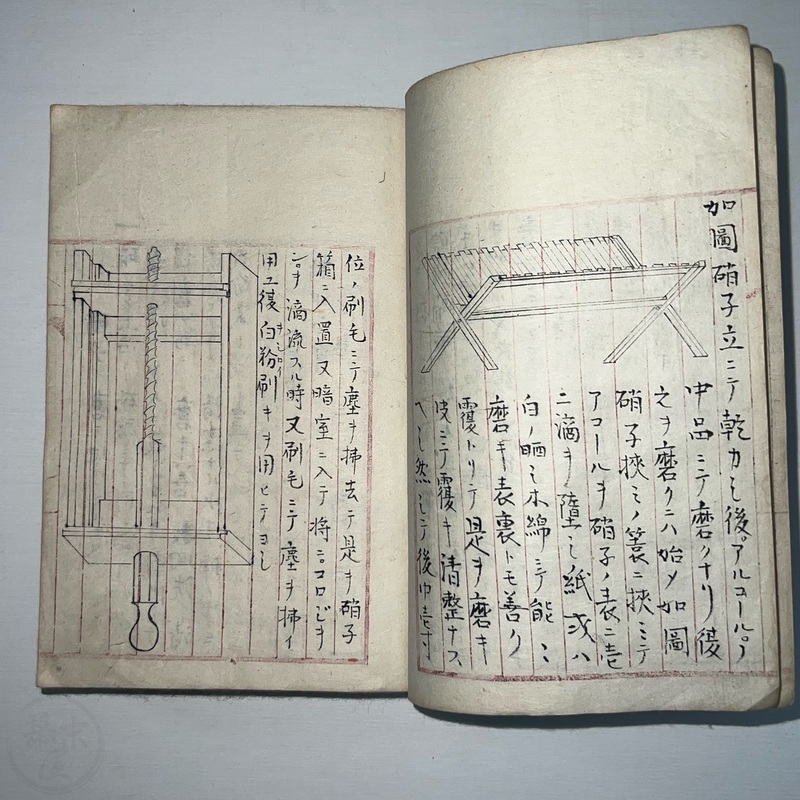 加圖硝子立ニテ乾カシ後アルコールノ
中品ニテ磨クナリ後
之ヲ磨クニハ始メ如圖
硝子挾ミノ簑ニ挾ミテ
アコールヲ硝子ノ表ニ壱
二滴ヲ墮シ紙或ハ
白ノ晒シ木綿ニテ能ミ
磨キ表裏トモ善ク
覆トリテ是ヲ磨キ
皮ニテ覆キ清整ナス
ヘシ然シテ後巾壱寸
位ノ刷毛ニテ塵ヲ拂去テ是ヲ硝子
箱ニ入置又暗室ニ入テ将ニコロジヲ
ンヲ滴流スル時又刷毛ニテ塵ヲ拂イ
用エ後白粉刷キヲ用ヒテヨシ